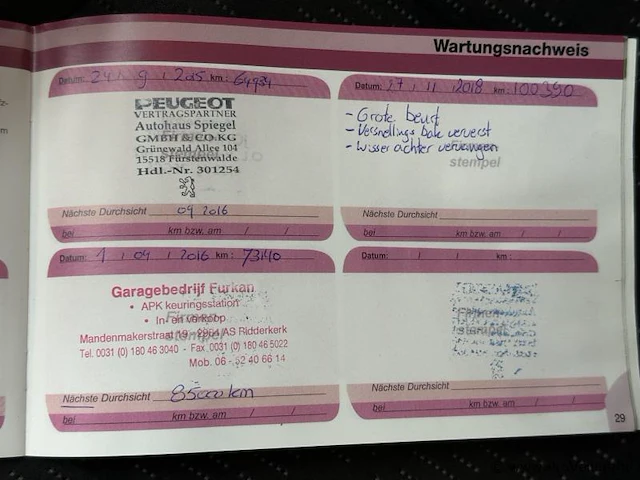 Wartungsnachweis
Datum: 24 9 2015 km: 64934
PEUGEOT
VERTRAGSPARTNER
Autohaus Spiegel
GMBH & CO.KG
Grünewald Allee 104
15518 Fürstenwalde
Hdl.-Nr. 301254
Nächste Durchsicht 09 2016
bei km bzw. am / /
Datum: 27 11 2018 km: 100390
- Grote beurt
- Versnellings bak ververst
- Wisser achter vervangen
Firmen
stempel
Nächste Durchsicht
bei km bzw. am / /
Datum: 1 / 04 / 2016 km: 73140
Garagebedrijf Furkan
• APK keuringsstation
• In- en verkoop
Firmen
stempel
Mandenmakerstraat 19 - 2984 AS Ridderkerk
Tel. 0031 (0) 180 46 3040 - Fax 0031 (0) 180 46 5022
Mob. 06 - 52 40 66 14
Nächste Durchsicht 85000 km
bei km bzw. am / /
Datum: / / km:
Firmen
stempel
Nächste Durchsicht
bei km bzw. am / /
29